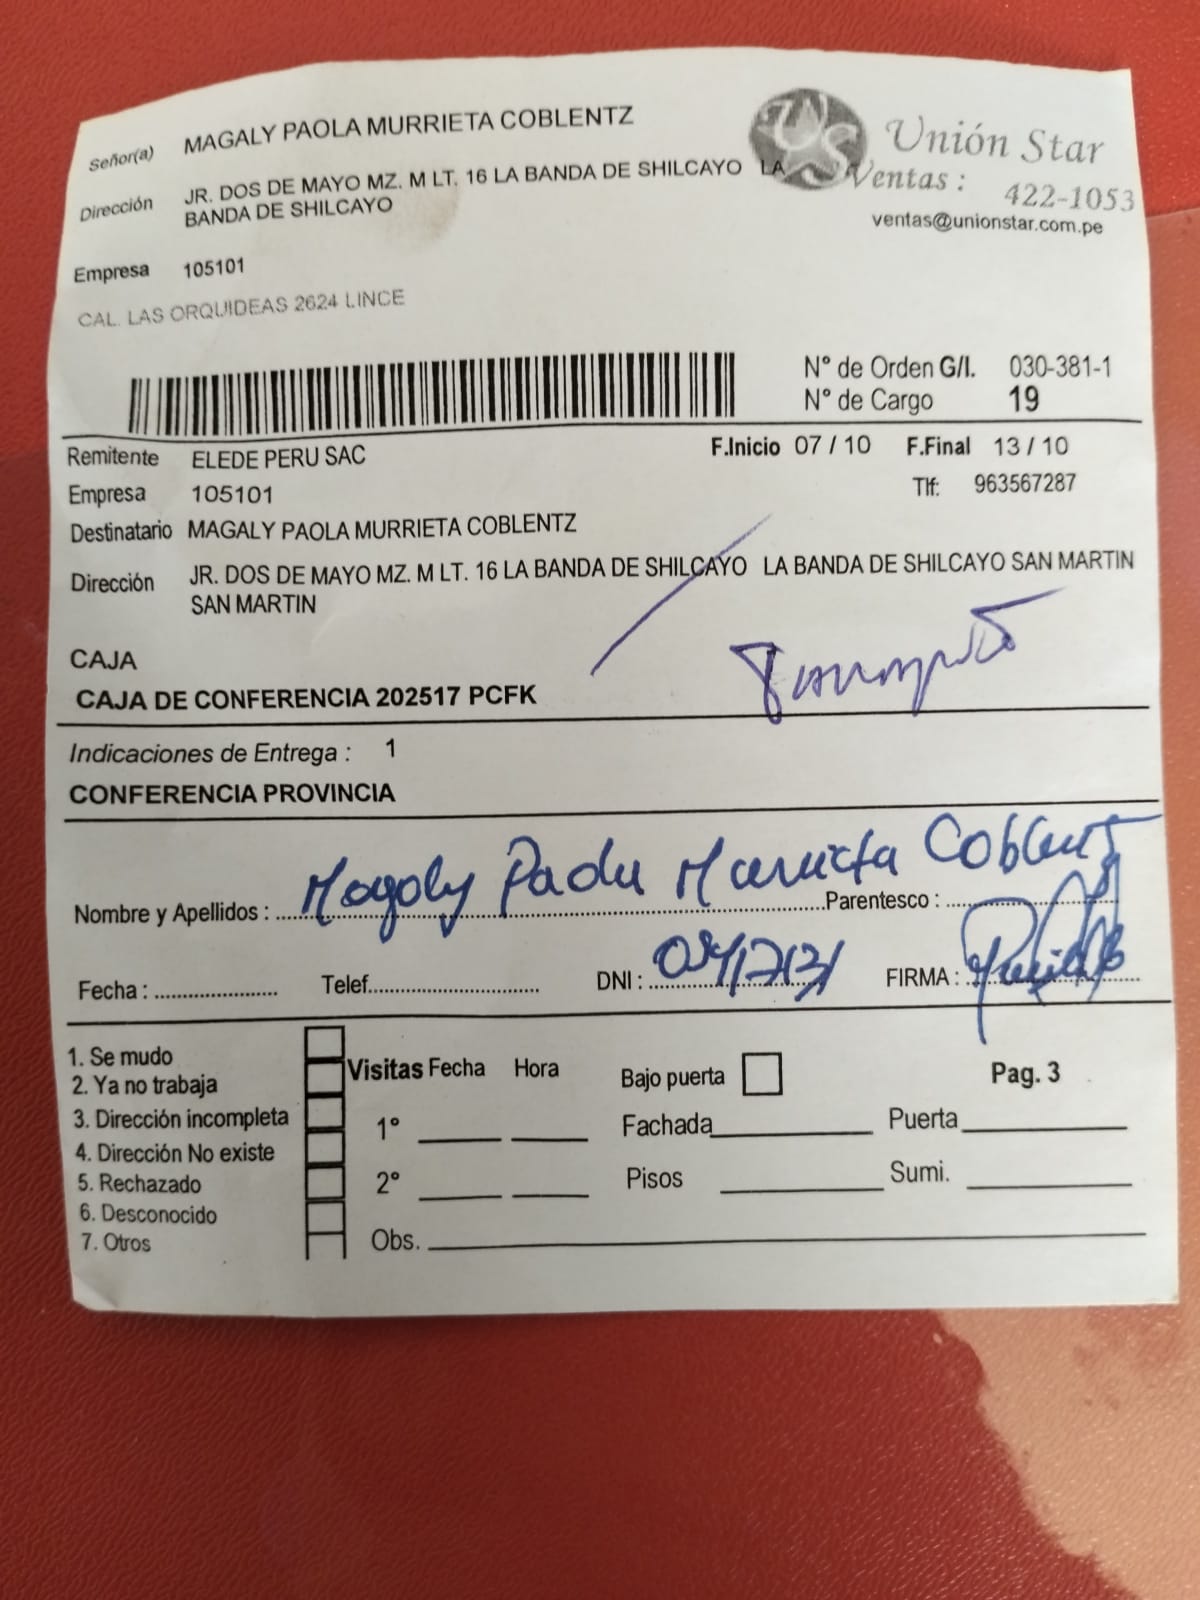 Señor(a) MAGALY PAOLA MURRIETA COBLENTZ
Unión Star
Dirección JR. DOS DE MAYO MZ. M LT. 16 LA BANDA DE SHILCAYO LA
BANDA DE SHILCAYO
Ventas : 422-1053
ventas@unionstar.com.pe
Empresa 105101
CAL. LAS ORQUIDEAS 2624 LINCE
N° de Orden G/I. 030-381-1
N° de Cargo 19
Remitente ELEDE PERU SAC
F.Inicio 07 / 10 F.Final 13 / 10
Empresa 105101
Tlf: 963567287
Destinatario MAGALY PAOLA MURRIETA COBLENTZ
Dirección JR. DOS DE MAYO MZ. M LT. 16 LA BANDA DE SHILCAYO LA BANDA DE SHILCAYO SAN MARTIN
SAN MARTIN
CAJA
CAJA DE CONFERENCIA 202517 PCFK
Indicaciones de Entrega : 1
CONFERENCIA PROVINCIA
Nombre y Apellidos : Magaly Paola Murrieta Coblentz Parentesco :
Fecha : Telef. DNI : FIRMA :
1. Se mudo
2. Ya no trabaja
3. Dirección incompleta
4. Dirección No existe
5. Rechazado
6. Desconocido
7. Otros
Visitas Fecha Hora
1°
2°
Obs.
Bajo puerta
Pag. 3
Fachada Puerta
Pisos Sumi.